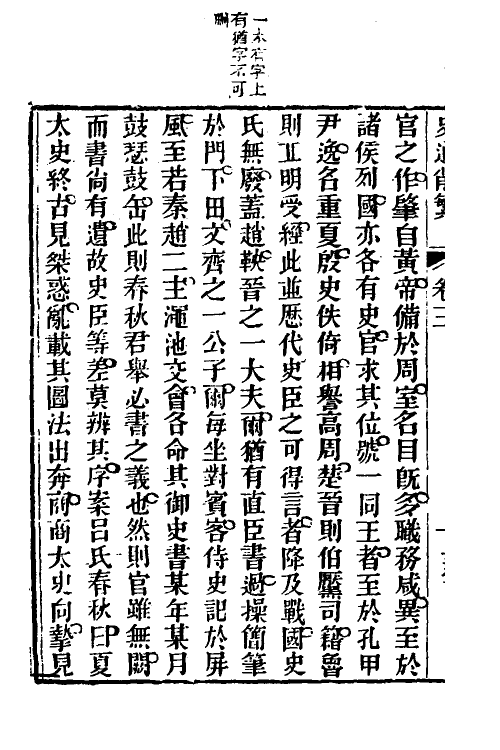 一本有字上
有猶字不可
刪
史通削繁 卷三
官之作肇自黃帝備於周室名目旣多職務咸異至於
諸侯列國亦各有史官求其位號一同王者至於孔甲
尹逸名重夏殷史佚倚相譽高周楚晉則伯黶司籍魯
則丘明受經此並歷代史臣之可得言者降及戰國史
氏無廢蓋趙鞅晉之一大夫爾猶有直臣書過操簡筆
於門下田文齊之一公子爾每坐對賓客侍史記於屏
風至若秦趙二主澠池交會各命其御史書某年某月
鼓瑟鼓缶此則春秋君舉必書之義也然則官雖無闕
而書尙有遺故史臣等差莫辨其序案呂氏春秋曰夏
太史終古見桀惑亂載其圖法出奔商商太史向摯見